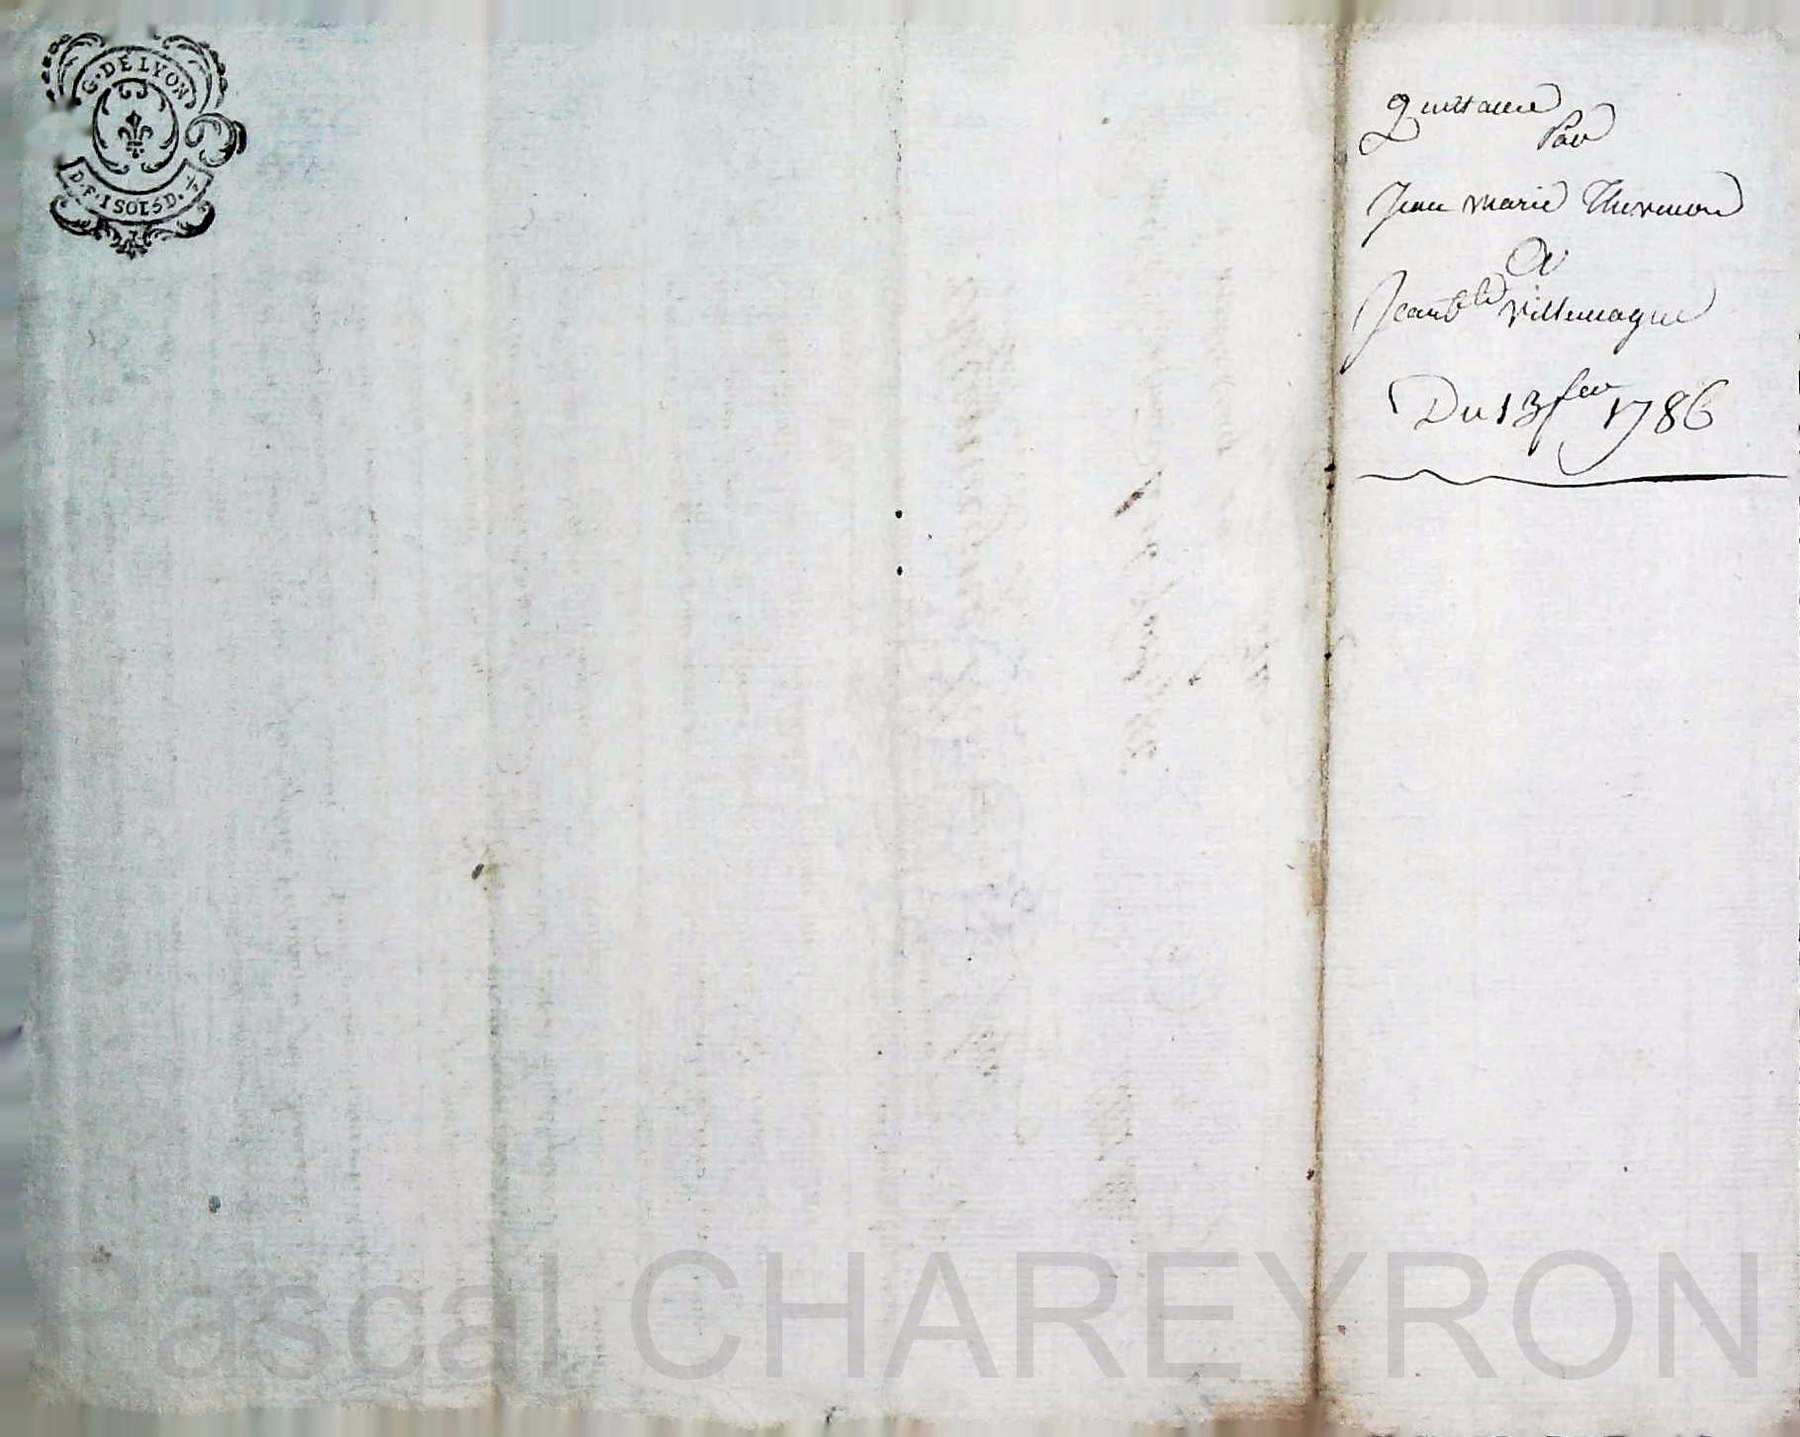 G. DE LYON
D. F. 1 SOL 5 D. ⅓
Quittance
Par
Jean marie Thevenon
A
Jean Bte Villemagne
Du 13 fev 1786
Pascal CHAREYRON